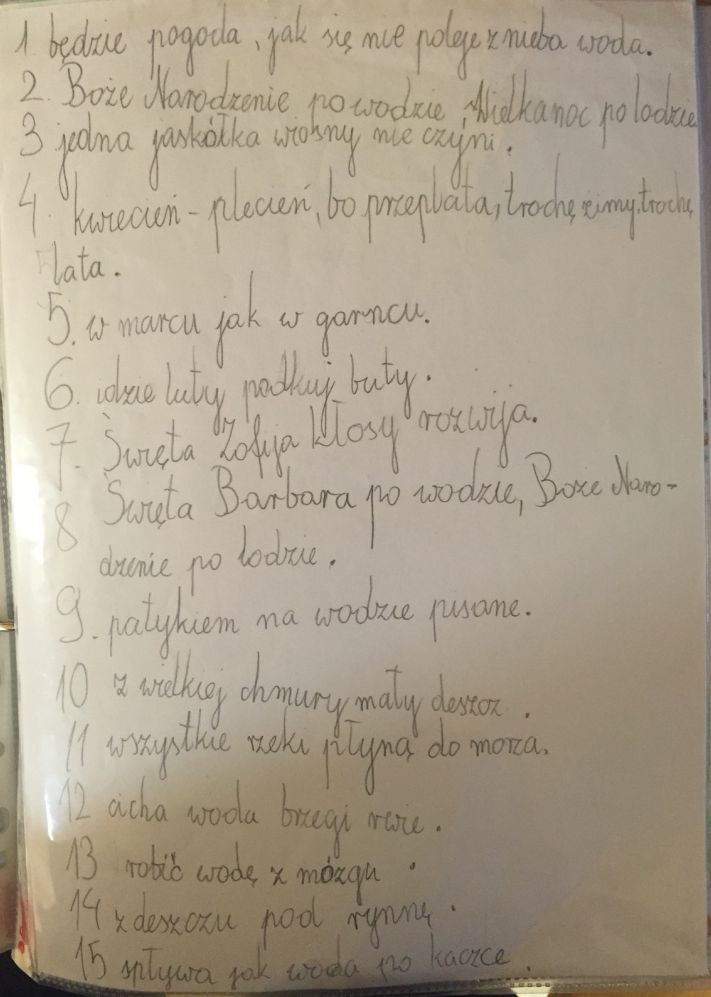 1 będzie pogoda, jak się nie poleje z nieba woda.
2. Boże Narodzenie po wodzie, Wielkanoc po lodzie
3 jedna jaskółka wiosny nie czyni.
4. kwiecień - plecień, bo przeplata, trochę zimy, trochę
lata.
5. w marcu jak w garncu.
6. idzie luty podkuj buty.
7. Święta Zofija kłosy rozwija.
8 Święta Barbara po wodzie, Boże Naro-
dzenie po lodzie.
9. patykiem na wodzie pisane.
10 z wielkiej chmury mały deszcz.
11 wszystkie rzeki płyną do morza.
12 cicha woda brzegi rwie.
13 robić wodę z mózgu.
14 z deszczu pod rynnę.
15 spływa jak woda po kaczce.